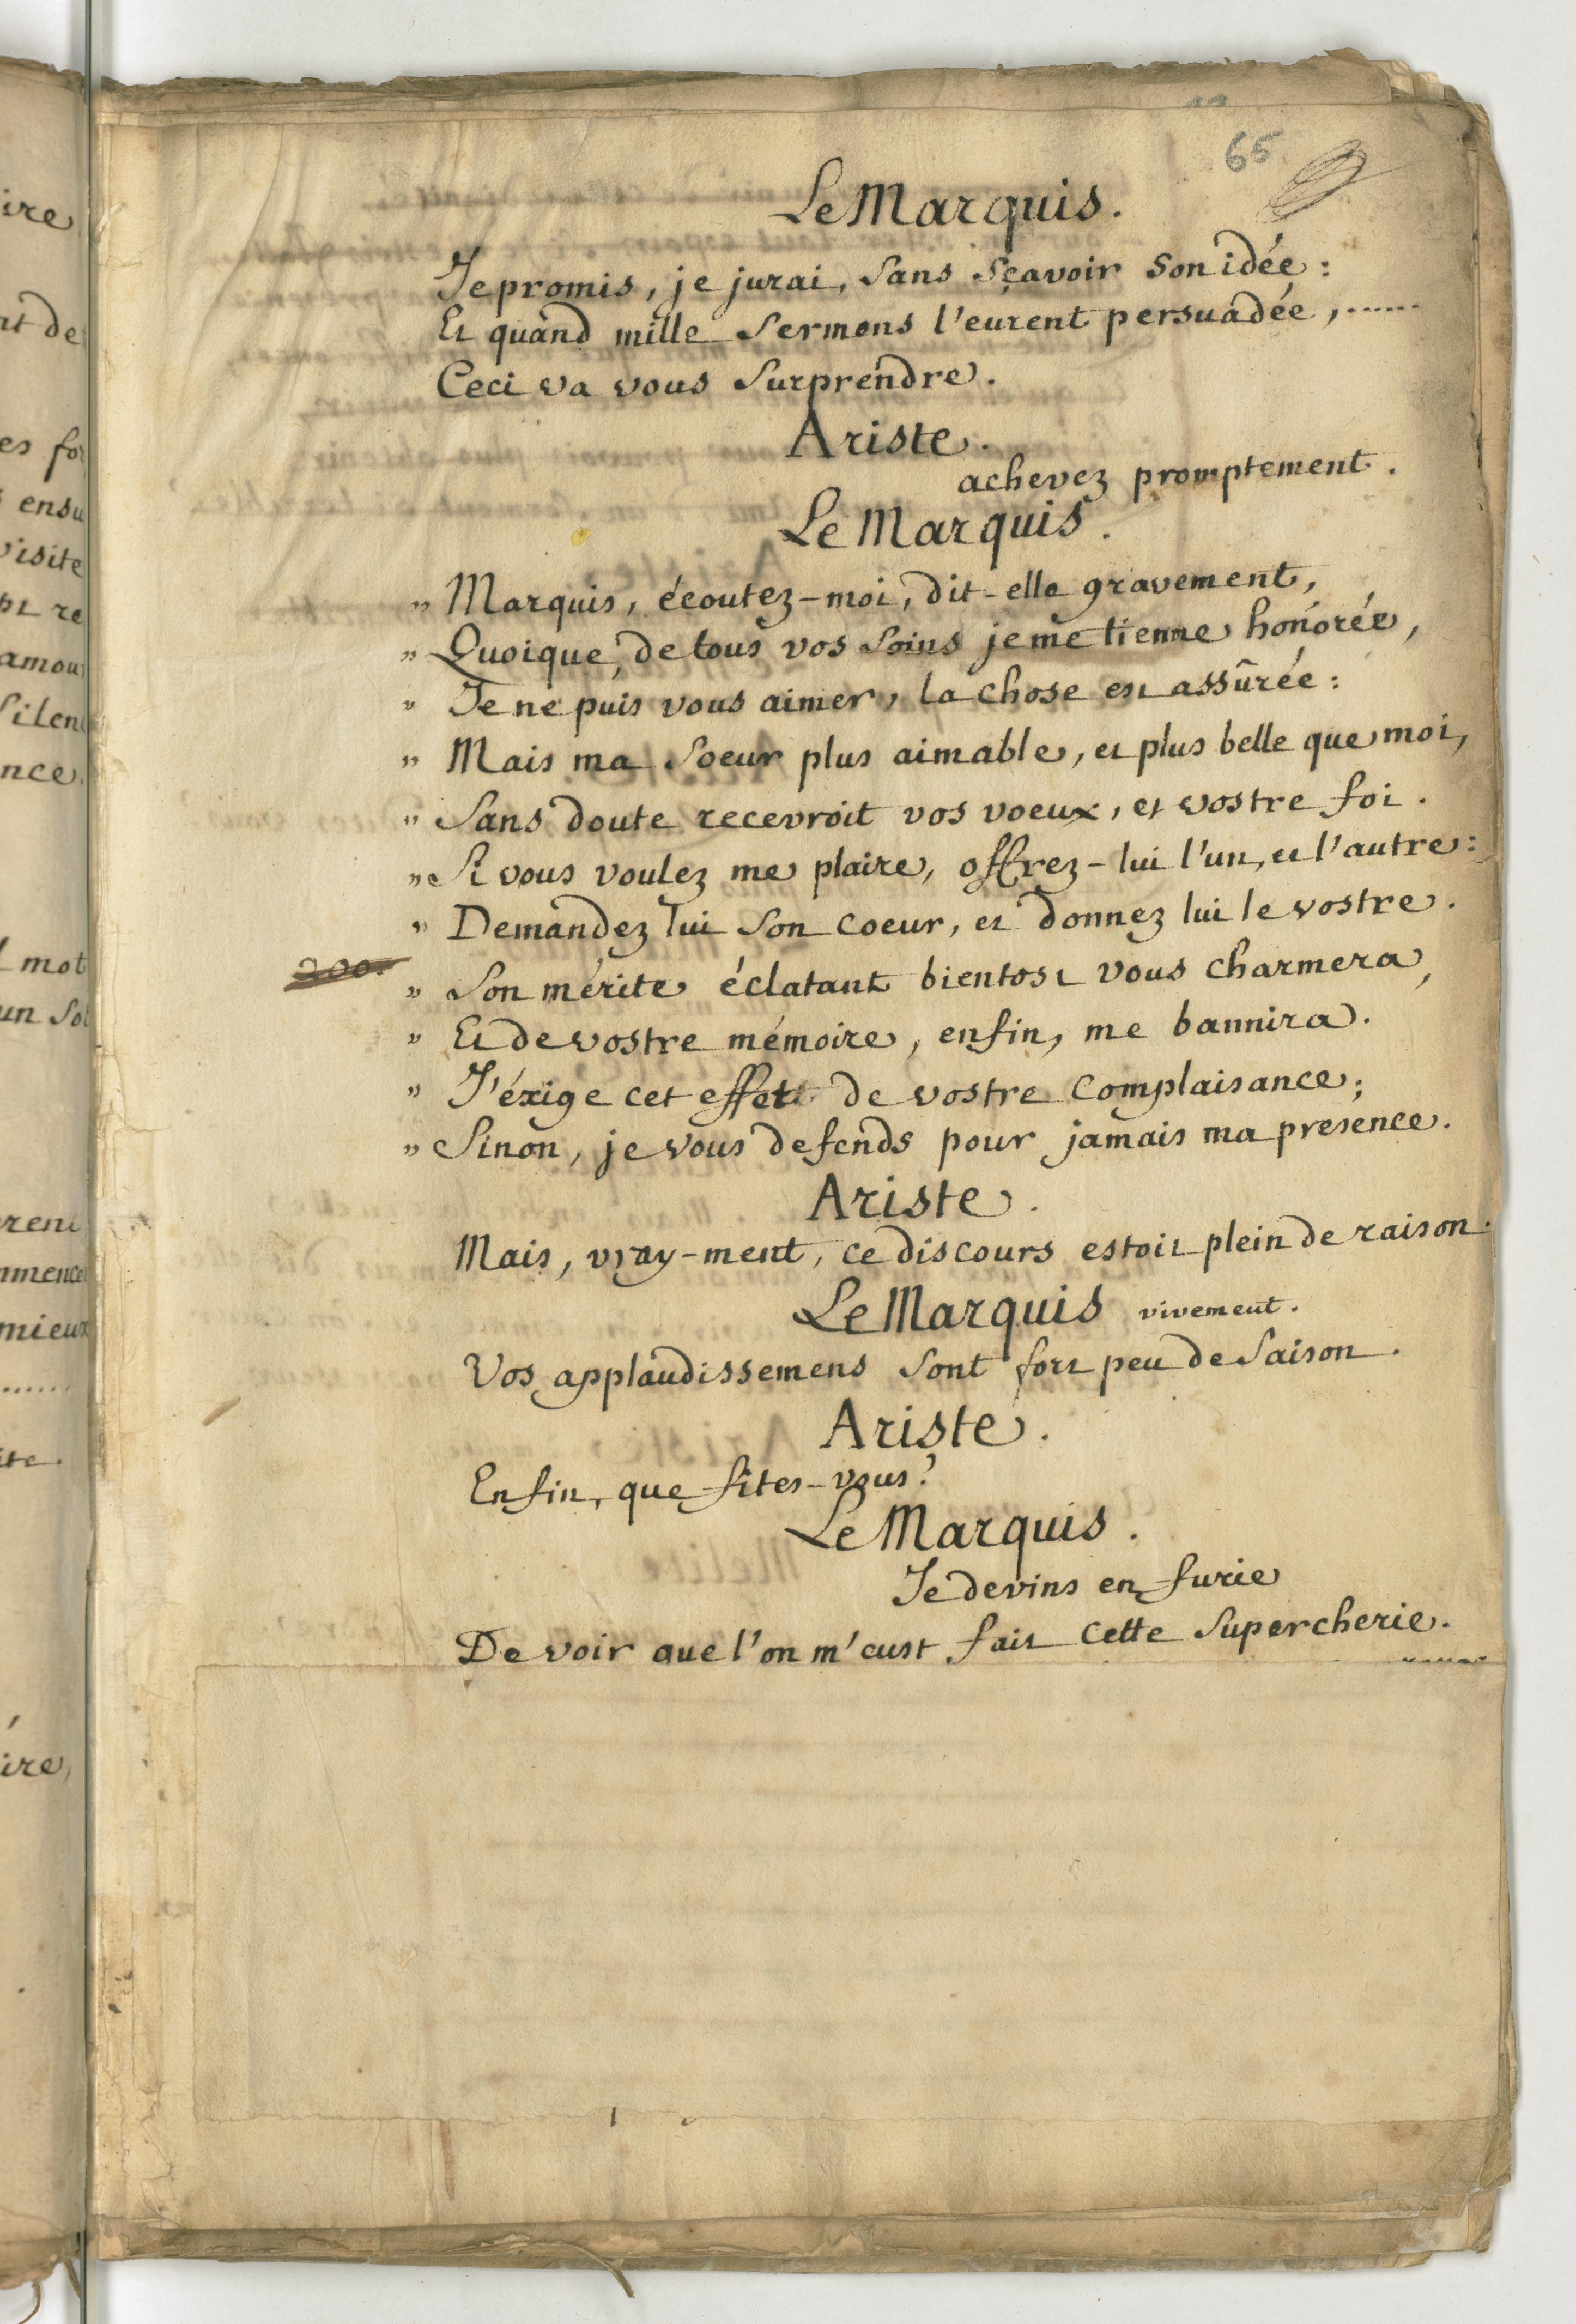 65
Le Marquis.
Je promis, je jurai, sans sçavoir son idée :
Et quand mille sermons l'eurent persuadée, ......
Ceci va vous surprendre.
Ariste.
achevez promptement.
Le Marquis.
" Marquis, écoutez-moi, dit-elle gravement,
" Quoique, de tous vos soins je me tienne honórée,
" Je ne puis vous aimer, la chose est assûrée :
" Mais ma soeur plus aimable, et plus belle que moi,
" Sans doute recevroit vos voeux, et vostre foi.
" Si vous voulez me plaire, offrez-lui l'un, et l'autre :
" Demandez lui son coeur, et donnez lui le vostre.
200.
" Son mérite éclatant bientost vous charmera,
" Et de vostre mémoire, enfin, me bannira.
" J'éxige cet effet de vostre complaisance ;
" Sinon, je vous defends pour jamais ma presence.
Ariste.
Mais, vray-ment, ce discours estoit plein de raison.
Le Marquis vivement.
Vos applaudissemens sont fort peu de saison.
Ariste.
Enfin, que fites-vous ?
Le Marquis.
Je devins en furie
De voir que l'on m'eust fait cette supercherie.